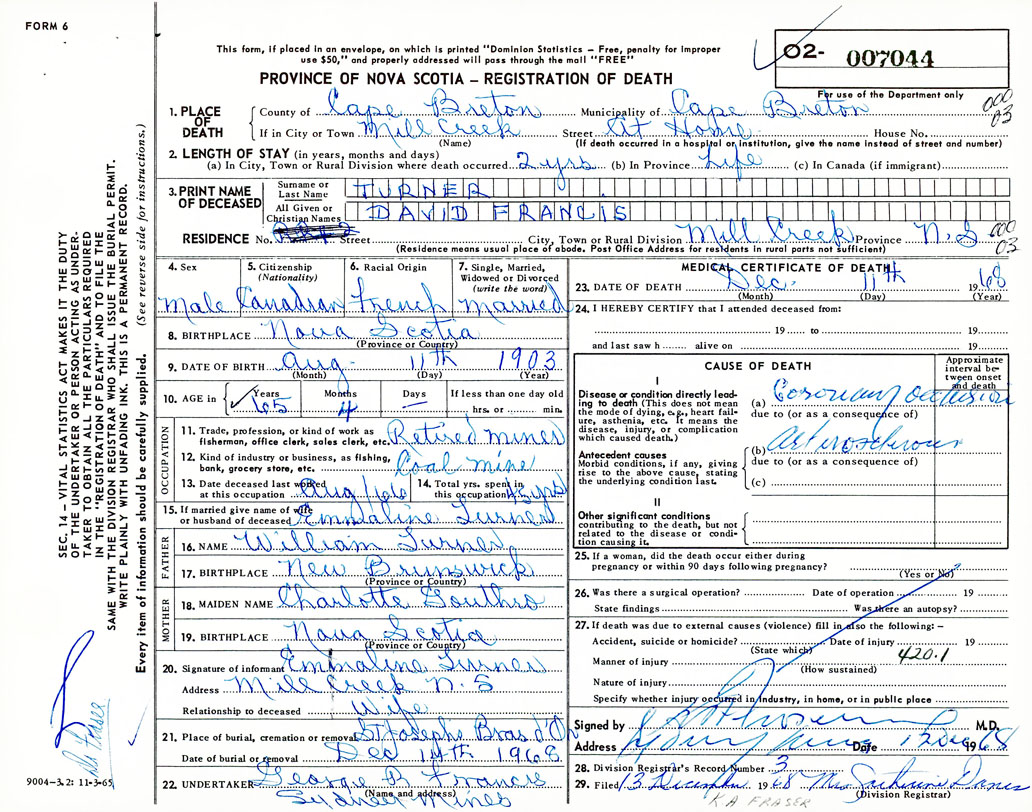 FORM 6
This form, if placed in an envelope, on which is printed "Dominion Statistics – Free, penalty for improper
use $50," and properly addressed will pass through the mail "FREE"
PROVINCE OF NOVA SCOTIA – REGISTRATION OF DEATH
02- 007044
For use of the Department only
000
03
1. PLACE OF DEATH
County of Cape Breton Municipality of Cape Breton
If in City or Town Mill Creek Street At Home House No.
(Name) (If death occurred in a hospital or institution, give the name instead of street and number)
2. LENGTH OF STAY (in years, months and days)
(a) In City, Town or Rural Division where death occurred 2 yrs (b) In Province Life (c) In Canada (if immigrant)
3. PRINT NAME OF DECEASED
Surname or Last Name TURNER
All Given or Christian Names DAVID FRANCIS
RESIDENCE No. Street City, Town or Rural Division Mill Creek Province N.S
(Residence means usual place of abode. Post Office Address for residents in rural parts not sufficient)
000
03
4. Sex Male
5. Citizenship (Nationality) Canadian
6. Racial Origin French
7. Single, Married, Widowed or Divorced (write the word) Married
8. BIRTHPLACE Nova Scotia
(Province or Country)
9. DATE OF BIRTH Aug. 11th 1903
(Month) (Day) (Year)
10. AGE in Years 65 Months 4 Days — If less than one day old
hrs. or min.
OCCUPATION
11. Trade, profession, or kind of work as fisherman, office clerk, sales clerk, etc. Retired miner
12. Kind of industry or business, as fishing, bank, grocery store, etc. Coal mine
13. Date deceased last worked at this occupation Aug/66
14. Total yrs. spent in this occupation 45 yrs
15. If married give name of wife or husband of deceased Emmaline Turner
FATHER
16. NAME William Turner
17. BIRTHPLACE New Brunswick
(Province or Country)
MOTHER
18. MAIDEN NAME Charlotte Gouthro
19. BIRTHPLACE Nova Scotia
(Province or Country)
20. Signature of informant Emmaline Turner
Address Mill Creek N.S
Relationship to deceased Wife
21. Place of burial, cremation or removal St Joseph's Bras d'Or
Date of burial or removal Dec 14th 1968
22. UNDERTAKER George B Francis
(Name and address)
Sydney Mines
MEDICAL CERTIFICATE OF DEATH
23. DATE OF DEATH Dec. 11th 1968
(Month) (Day) (Year)
24. I HEREBY CERTIFY that I attended deceased from:
19 to 19
and last saw h alive on 19
CAUSE OF DEATH
Approximate interval between onset and death
I
Disease or condition directly leading to death (This does not mean the mode of dying, e.g., heart failure, asthenia, etc. It means the disease, injury, or complication which caused death.)
(a) Coronary occlusion
due to (or as a consequence of)
Antecedent causes
Morbid conditions, if any, giving rise to the above cause, stating the underlying condition last.
(b)
due to (or as a consequence of)
(c)
II
Other significant conditions contributing to the death, but not related to the disease or condition causing it.
25. If a woman, did the death occur either during pregnancy or within 90 days following pregnancy?
(Yes or No)
26. Was there a surgical operation? Date of operation 19
State findings Was there an autopsy?
27. If death was due to external causes (violence) fill in also the following: –
Accident, suicide or homicide? Date of injury 19
(State which)
420.1
Manner of injury
(How sustained)
Nature of injury
Specify whether injury occurred in industry, in home, or in public place
Signed by M.D.
Address Sydney Mines Date 13 Dec 1968
28. Division Registrar's Record Number 3
29. Filed 13 December 1968 Mrs
(Division Registrar)
K.A FRASER
SEC. 14 – VITAL STATISTICS ACT MAKES IT THE DUTY
OF THE UNDERTAKER OR PERSON ACTING AS UNDER-
TAKER TO OBTAIN ALL THE PARTICULARS REQUIRED
IN THE "REGISTRATION OF DEATH" AND TO FILE THE
SAME WITH THE DIVISION REGISTRAR WHO SHALL ISSUE THE BURIAL PERMIT.
WRITE PLAINLY WITH UNFADING INK. THIS IS A PERMANENT RECORD.
Every item of information should be carefully supplied. (See reverse side for instructions.)
9004–3.2: 11-3-65